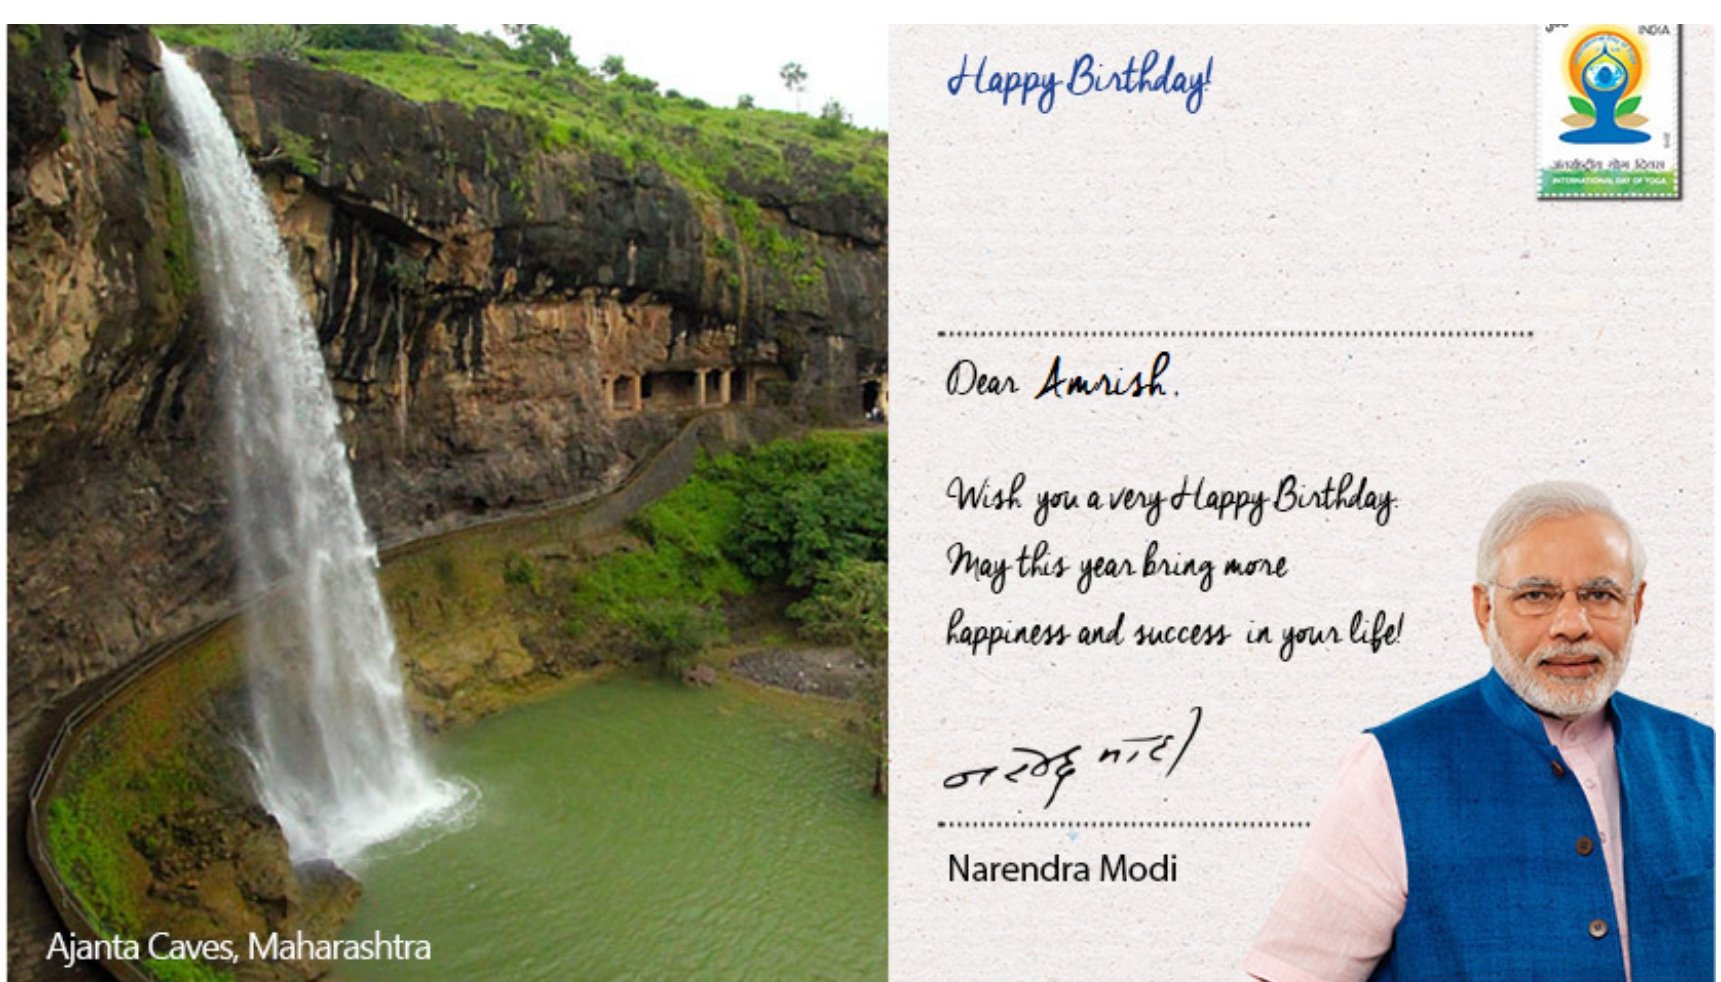 Happy Birthday!
INDIA
अंतर्राष्ट्रीय योग दिवस
INTERNATIONAL DAY OF YOGA
Dear Amrish,
Wish you a very Happy Birthday.
May this year bring more
happiness and success in your life!
नरेन्द्र मोदी
Narendra Modi
Ajanta Caves, Maharashtra